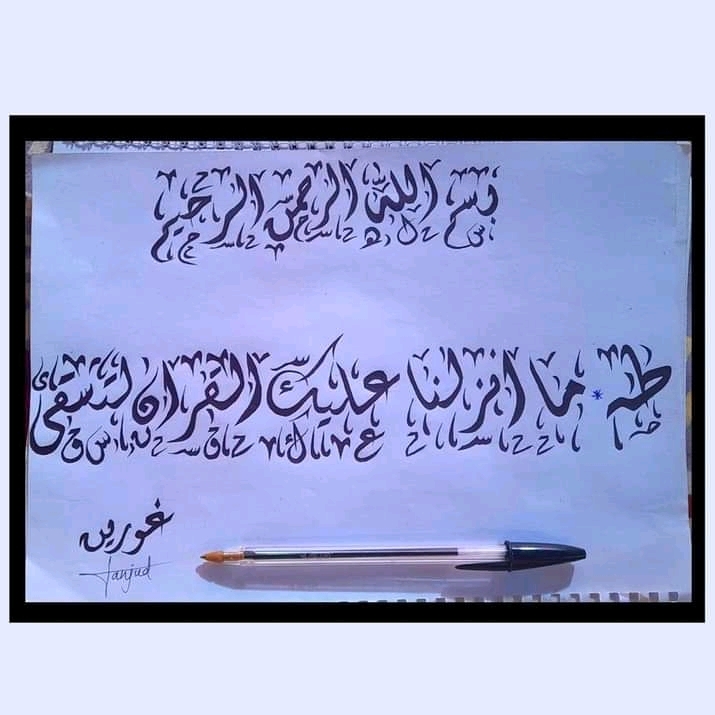 بسم الله الرحمن الرحيم
طه * ما انزلنا عليك القران لتشقى
غورين
tanjud